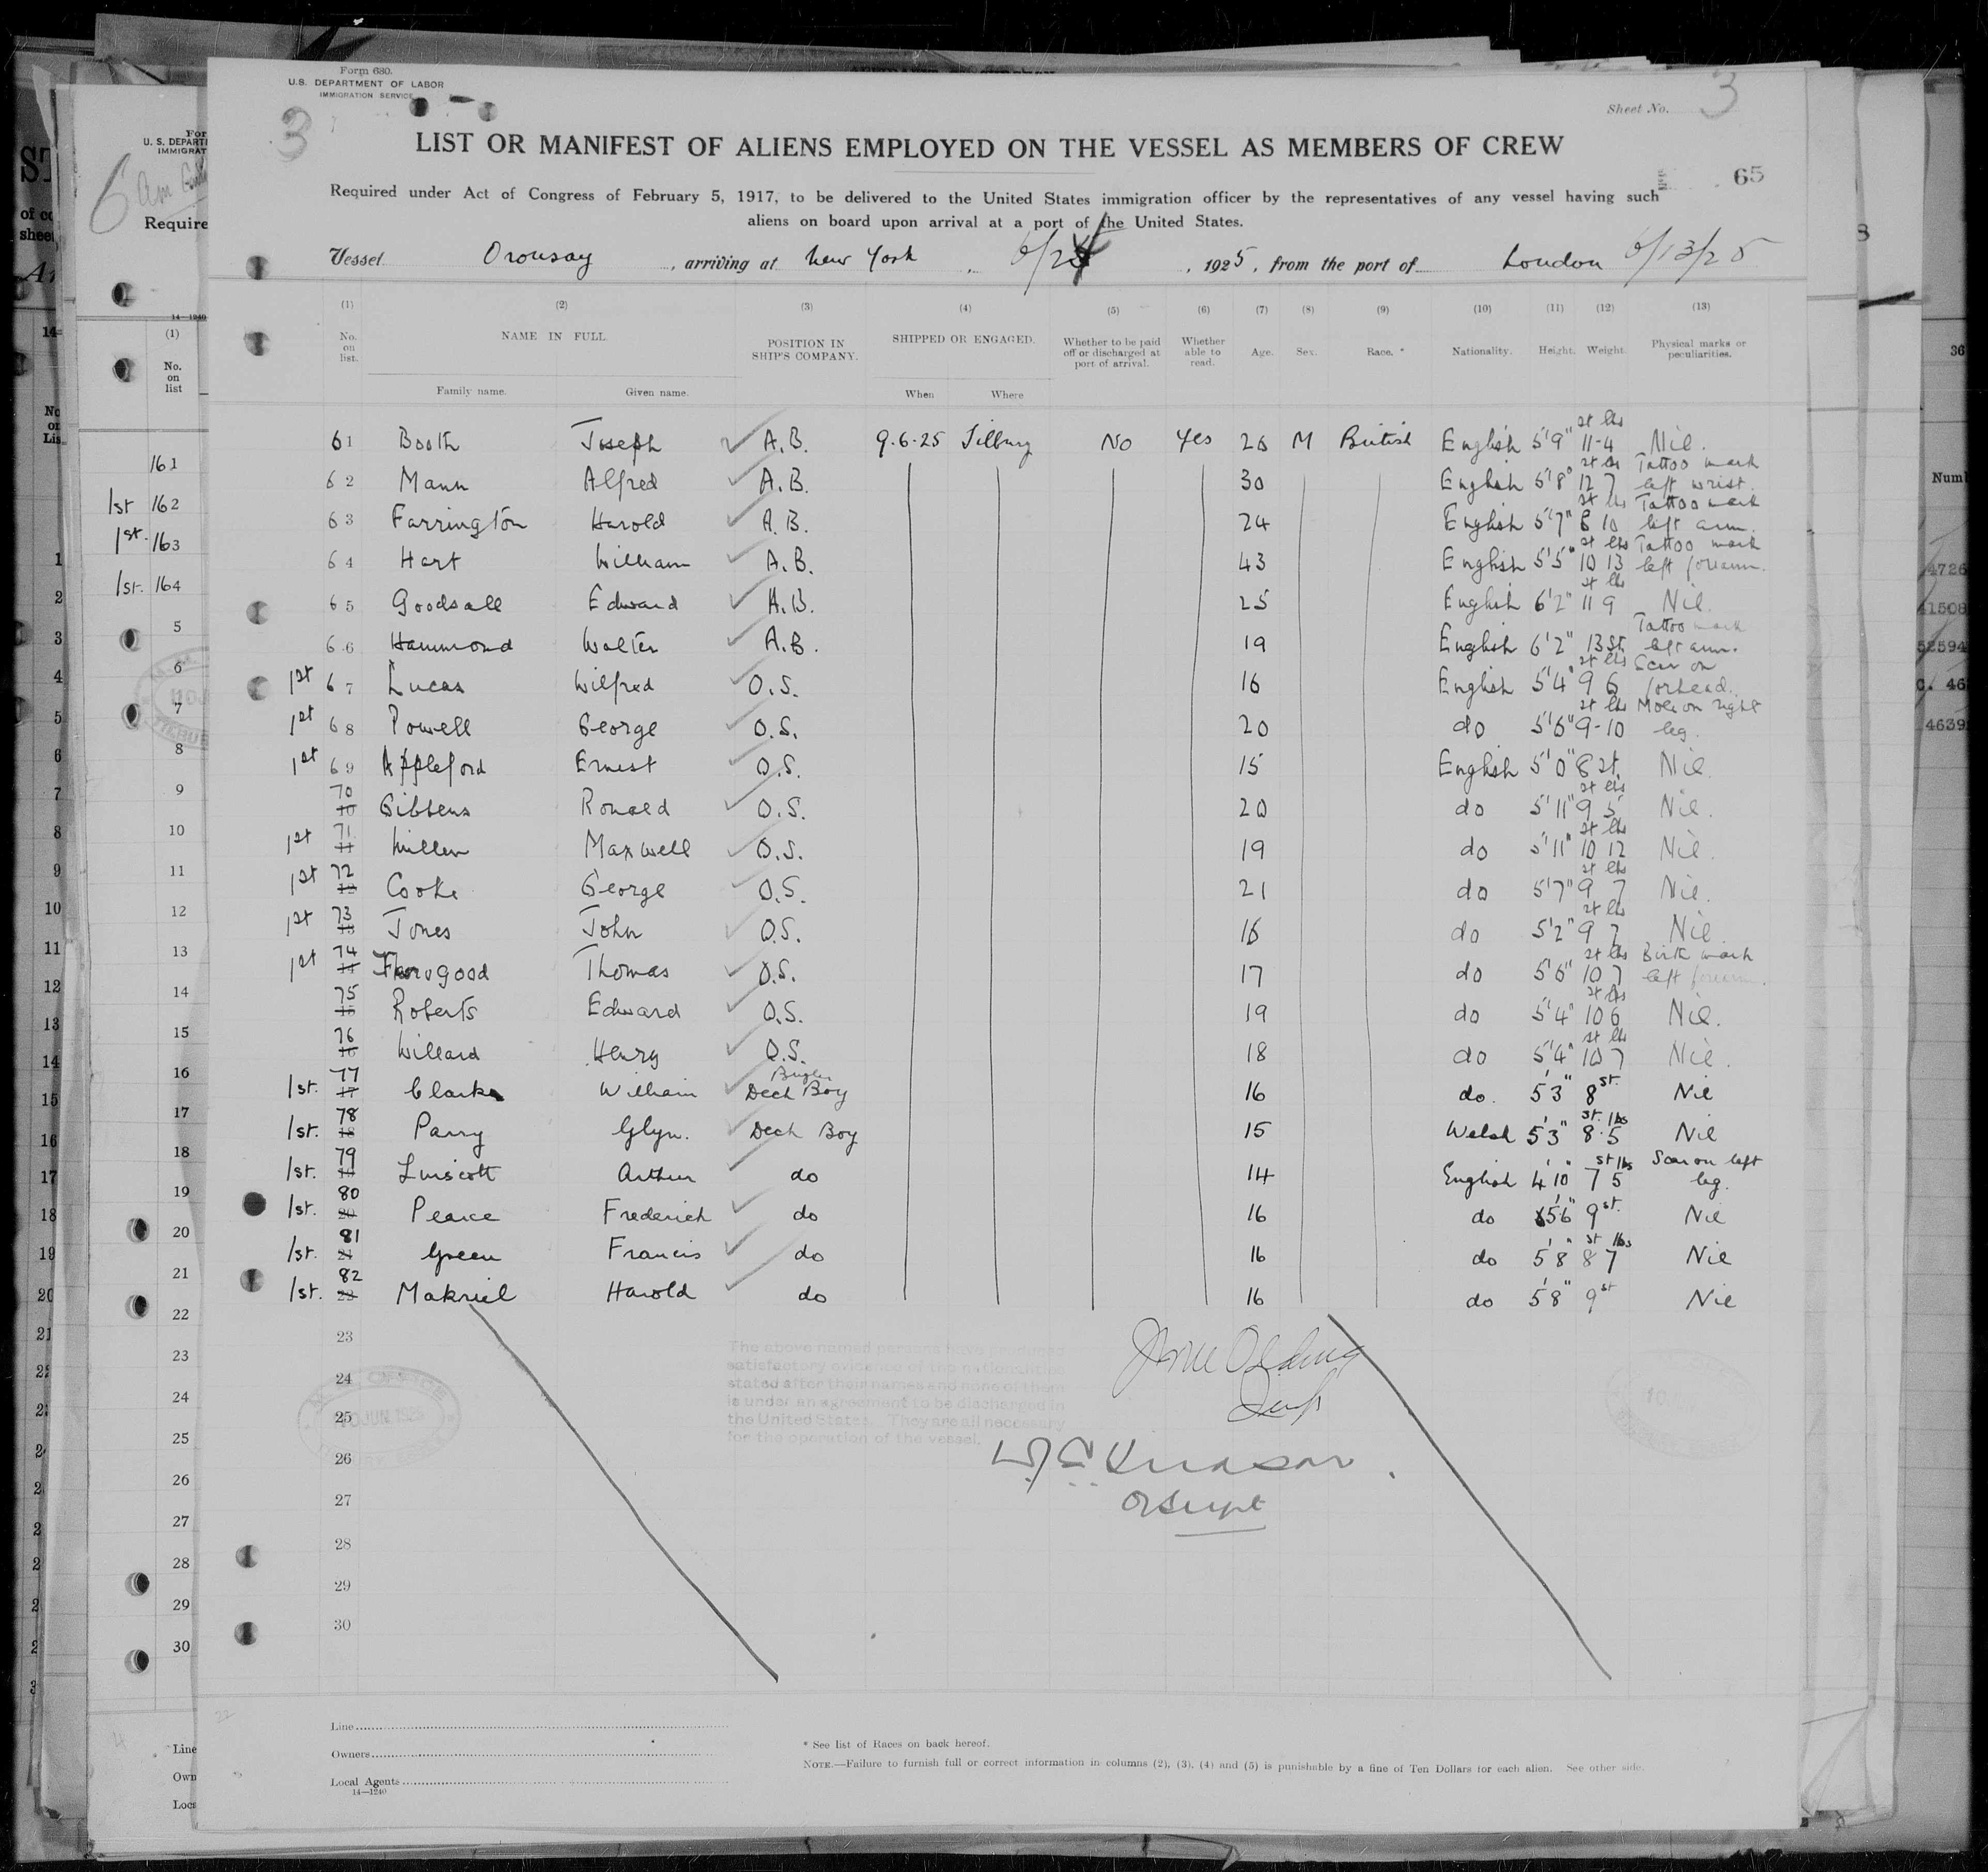 Form 680.
U.S. DEPARTMENT OF LABOR
IMMIGRATION SERVICE
Sheet No. 3
3
LIST OR MANIFEST OF ALIENS EMPLOYED ON THE VESSEL AS MEMBERS OF CREW
65
Required under Act of Congress of February 5, 1917, to be delivered to the United States immigration officer by the representatives of any vessel having such
aliens on board upon arrival at a port of the United States.
Vessel Oronsay, arriving at New York, 1925, from the port of London 6/13/25
(1) (2) (3) (4) (5) (6) (7) (8) (9) (10) (11) (12) (13)
No. on list. NAME IN FULL POSITION IN SHIP'S COMPANY. SHIPPED OR ENGAGED. Whether to be paid off or discharged at port of arrival. Whether able to read. Age. Sex. Race. * Nationality. Height. Weight. Physical marks or peculiarities.
Family name. Given name. When Where
61 Booth Joseph A.B. 9-6-25 Tilbury No Yes 26 M British English 5'9" st lbs 11-4 Nil.
62 Mann Alfred A.B. 30 English 5'8" st lbs 12 7 Tattoo mark left wrist.
63 Farrington Harold A.B. 24 English 5'7" st lbs 8 10 Tattoo mark left arm.
64 Hart William A.B. 43 English 5'5" st lbs 10 13 Tattoo mark left forearm.
65 Goodsall Edward A.B. 25 English 6'2" st lbs 11 9 Nil.
66 Hammond Walter A.B. 19 English 6'2" 13 st. Tattoo mark left arm.
1st 67 Lucas Wilfred O.S. 16 English 5'4" st lbs 9 6 Scar on forhead.
1st 68 Powell George O.S. 20 do 5'6" st lbs 9-10 Mole on right leg.
1st 69 Appleford Ernest O.S. 15 English 5'0" 8 st. Nil.
70 10 Gibbens Ronald O.S. 20 do 5'11" st lbs 9 5 Nil.
1st 71 11 Miller Maxwell O.S. 19 do 5'11" st lbs 10 12 Nil.
1st 72 12 Cooke George O.S. 21 do 5'7" st lbs 9 7 Nil.
1st 73 13 Jones John O.S. 16 do 5'2" st lbs 9 7 Nil
1st 74 14 Thorogood Thomas O.S. 17 do 5'6" st lbs 10 7 Birth mark left forearm.
75 15 Roberts Edward O.S. 19 do 5'4" st lbs 10 6 Nil.
76 16 Willard Henry O.S. 18 do 5'4" st lbs 10 7 Nil.
1st. 77 17 Clarke William Bugler Deck Boy 16 do. 5'3" 8 st. Nil
1st. 78 18 Parry Glyn. Deck Boy 15 Welsh 5'3" st. lbs 8.5 Nil
1st. 79 Linscott Arthur do 14 English 4'10" st lbs 7 5 Scar on left leg.
1st. 80 20 Pearce Frederick do 16 do 5'6" 9 st. Nil
1st. 81 21 Green Francis do 16 do 5'8" st lbs 8 7 Nil
1st. 82 22 Makriel Harold do 16 do 5'8" 9 st Nil
23
24
25
26
27
28
29
30
The above named persons have produced
satisfactory evidence of the nationalities
stated after their names and none of them
is under an agreement to be discharged in
the United States. They are all necessary
for the operation of the vessel.
Line
Owners
Local Agents
14—1240
* See list of Races on back hereof.
NOTE.—Failure to furnish full or correct information in columns (2), (3), (4) and (5) is punishable by a fine of Ten Dollars for each alien. See other side.
U. S. DEPARTI
IMMIGRAT
Require
14—1240
(1)
No. on list
161
1st 162
1st. 163
1st. 164
5
6
7
8
9
10
11
12
13
14
15
16
17
18
19
20
21
22
23
24
25
26
27
28
29
30
Line
Own
Loca